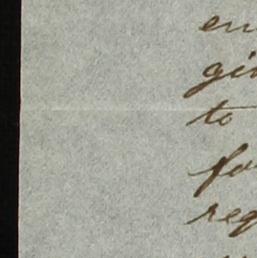 en
gi
to
fo
reg